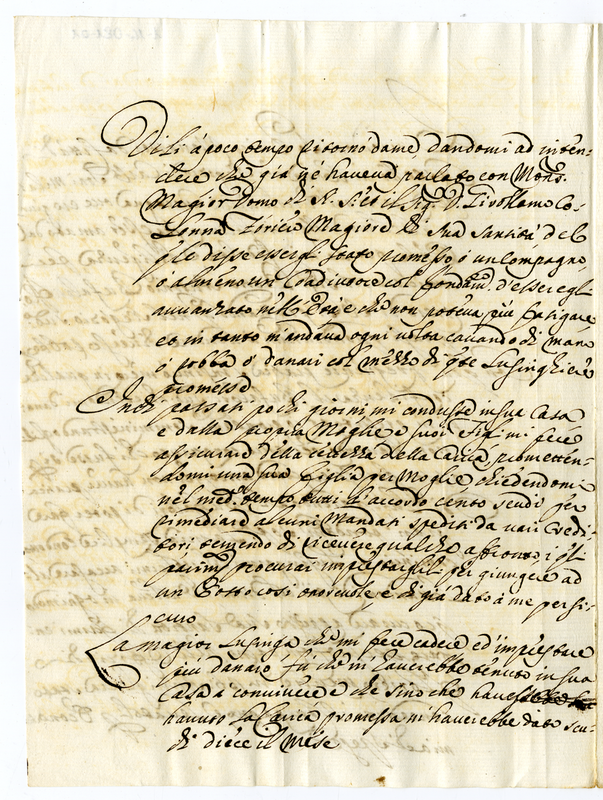 Di lì á poco tempo ritornò da me dandomi ad inten-
dere che già n'è haveva parlato con Mons.
Magior Domo di N. S. et il Sig. D. Girollamo Co-
lonna Forieró Magiore di Sua Santità, da
q.li disse essergli stato promesso ó un Compagno,
ó alméno un Coadiutore col fondam. d'essere egli
avvanzato nell' Età e che non poteva più fatigare
et in tanto m'andava ogni volta cavando di mano
ó robba ó danari col mezzo di q.te Lusinghiere
promesse
Indi passati pochi giorni mi condusse in sua Casa
e dalla propria Moglie e suoi Figli mi fece
assicurare della certezza della Carica promettén-
domi una sua Figlia per Moglie chiedendomi
nel med.mo tempo tutti d'accordo cento scudi per
rimediare alcuni Mandati spediti da varii Credi-
tori temendo di ricevere qualche affronto, i q.li
parim. procurai imprestargli per giungere ad
un Posto così onorevole, e di già dato á me per si-
curo
La magior Lusinga che mi fece cadere ed' imprestare
più danaro fù che mi haverebbe tenuto in sua
Casa á convivere e che sino che
havuto La Carica promessa m'haverebbe dato scu-
di diéce il Mése